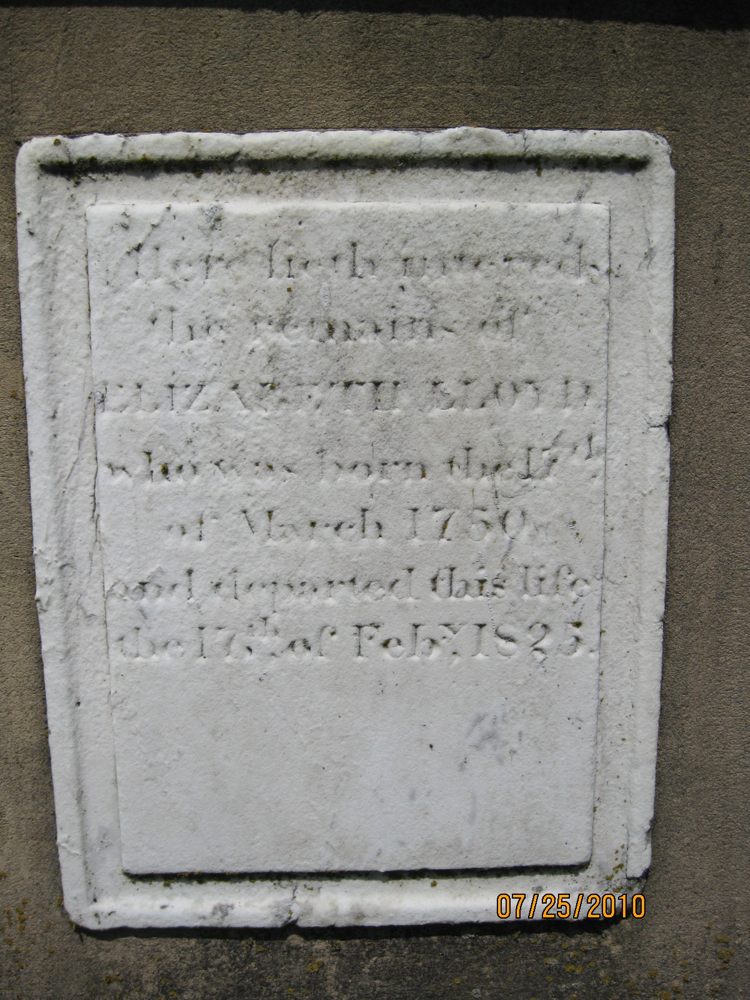 Here lieth intered
the remains of
ELIZABETH LLOYD
who was born the 17th
of March 1750
and departed this life
the 17th of Feby. 1825.
07/25/2010